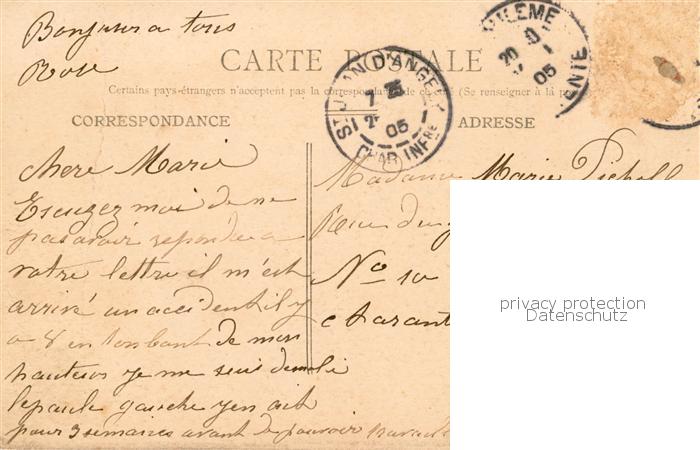 Bonjour a tous
Rose
CARTE POSTALE
Certains pays-étrangers n'acceptent pas la correspondance de ce côté (Se renseigner à la
CORRESPONDANCE
ADRESSE
ST JEAN D'ANGELY
7
2
05
CHAR INFRE
20
05
chere Marie
Escugez moi de ne
pas avoir reponde a
votre lettre il m'est
arrivé un accident il y
a 8 en tonbant de mon
hauteur je me suis demli
lepaule gauche jen ait
pour 3 semaines avant de pouvoir
Madame Marie
Rue du
No 10
charant
privacy protection
Datenschutz